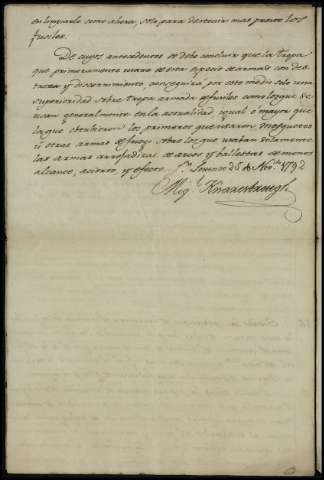 en limpiarlo como ahora, solo para destruir mas pronto los
fusiles.
De cuyos antecedentes se debe concluir que la tropa
que primeramente usare de esta especie de armas con des-
treza y discernimiento conseguirá por este medio sola una
superioridad sobre tropa armada de fusiles como los que se
usan generalmente en la actualidad igual ó mayor que
la que obtubieron los primeros que usaron mosquetes
ú otras armas de fuego sobre los que usaban solamente
las armas arrojadizas de arcos y ballestas de menos
alcance, acierto, y efecto. Sn. Lorenzo de 1792
Migl. Knaresbrough